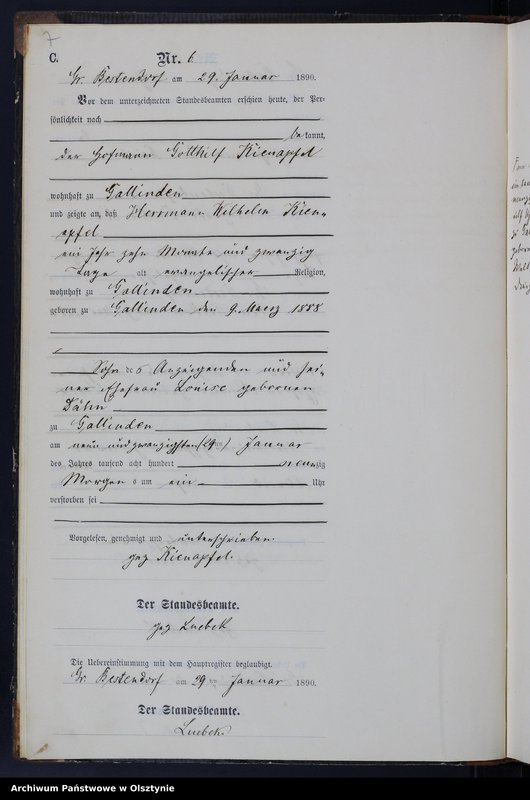 7
C.
Nr. 6
Gr. Bestendorf am 29. Januar 1890.
Vor dem unterzeichneten Standesbeamten erschien heute, der Per-
sönlichkeit nach
bekannt,
der Hofmann Gotthilf Kienapfel
wohnhaft zu Gallinden
und zeigte an, daß Herrmann Wilhelm Kien-
apfel
ein Jahr zehn Monate und zwanzig
Tage alt evangelischer Religion,
wohnhaft zu Gallinden
geboren zu Gallinden den 9. Maerz 1888
Sohn des Anzeigenden und sei-
ner Ehefrau Louise geborenen
Dähn
zu Gallinden
am neun und zwanzigsten (29ten) Januar
des Jahres tausend acht hundert neunzig
Morgens um ein Uhr
verstorben sei
Vorgelesen, genehmigt und unterschrieben.
gez Kienapfel.
Der Standesbeamte.
gez Luebeck
Die Uebereinstimmung mit dem Hauptregister beglaubigt.
Gr. Bestendorf am 29ten Januar 1890.
Der Standesbeamte.
Luebeck.
Archiwum Państwowe w Olsztynie